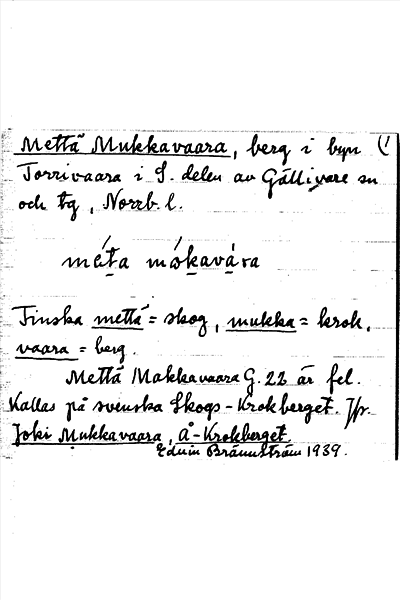 Mettä Mukkavaara, berg i byn (1
Torrivaara i S. delen av Gällivare sn
och tg, Norrb. l.
méta mókavára
Finska mettä = skog, mukka = krok,
vaara = berg.
Mettä Makkavaara G. 22 är fel.
Kallas på svenska Skogs-Krokberget. Jfr.
Joki Mukkavaara, Å-Krokberget.
Edvin Brännström 1939.